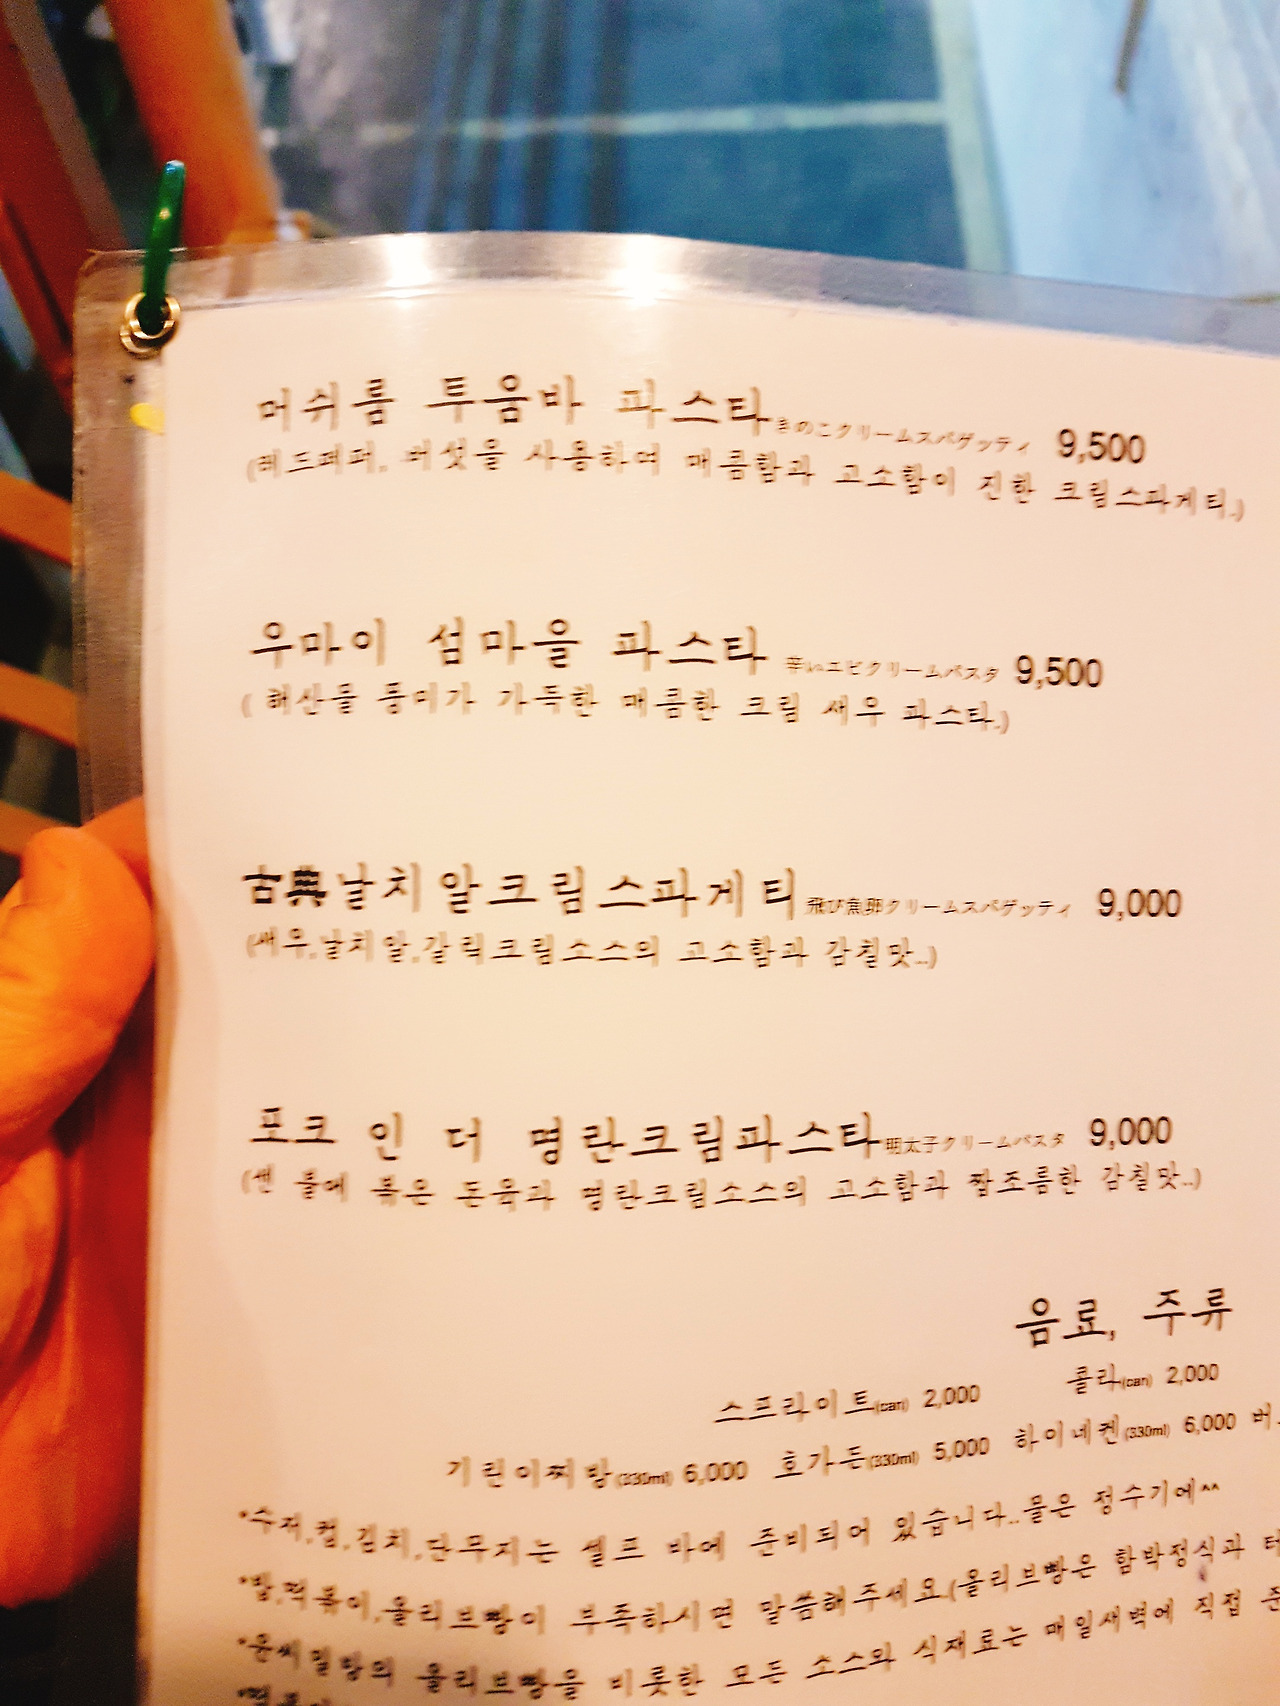 머쉬룸 투움바 파스타 きのこクリームスパゲッティ 9,500
(레드페퍼, 버섯을 사용하여 매콤함과 고소함이 진한 크림스파게티.)
우마이 섬마을 파스타 辛いエビクリームパスタ 9,500
( 해산물 풍미가 가득한 매콤한 크림 새우 파스타.)
古典날치알크림스파게티 飛び魚卵クリームスパゲッティ 9,000
(새우,날치알,갈릭크림소스의 고소함과 감칠맛..)
포크 인 더 명란크림파스타 明太子クリームパスタ 9,000
(센 불에 볶은 돈육과 명란크림소스의 고소함과 짭조름한 감칠맛..)
음료, 주류
스프라이트(can) 2,000 콜라(can) 2,000
기린이찌방(330ml) 6,000 호가든(330ml) 5,000 하이네켄(330ml) 6,000 버
*수저,컵,김치,단무지는 셀프 바에 준비되어 있습니다..물은 정수기에^^
*밥,떡볶이,올리브빵이 부족하시면 말씀해주세요.(올리브빵은 함박정식과 테
*윤씨밀방의 올리브빵을 비롯한 모든 소스와 식재료는 매일새벽에 직접 준